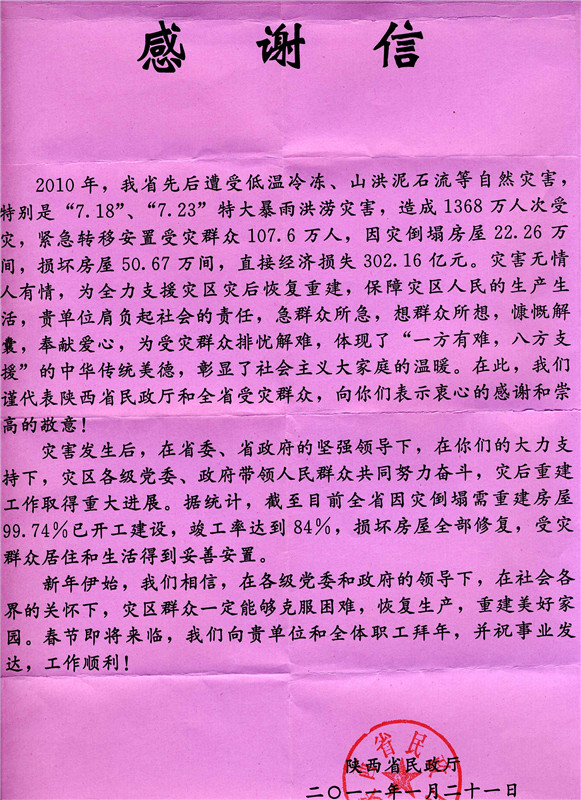 感谢信
2010年，我省先后遭受低温冷冻、山洪泥石流等自然灾害，
特别是“7.18”、“7.23”特大暴雨洪涝灾害，造成1368万人次受
灾，紧急转移安置受灾群众107.6万人，因灾倒塌房屋22.26万
间，损坏房屋50.67万间，直接经济损失302.16亿元。灾害无情
人有情，为全力支援灾区灾后恢复重建，保障灾区人民的生产生
活，贵单位肩负起社会的责任，急群众所急，想群众所想，慷慨解
囊，奉献爱心，为受灾群众排忧解难，体现了“一方有难，八方支
援”的中华传统美德，彰显了社会主义大家庭的温暖。在此，我们
谨代表陕西省民政厅和全省受灾群众，向你们表示衷心的感谢和崇
高的敬意！
灾害发生后，在省委、省政府的坚强领导下，在你们的大力支
持下，灾区各级党委、政府带领人民群众共同努力奋斗，灾后重建
工作取得重大进展。据统计，截至目前全省因灾倒塌需重建房屋
99.74%已开工建设，竣工率达到84%，损坏房屋全部修复，受灾
群众居住和生活得到妥善安置。
新年伊始，我们相信，在各级党委和政府的领导下，在社会各
界的关怀下，灾区群众一定能够克服困难，恢复生产，重建美好家
园。春节即将来临，我们向贵单位和全体职工拜年，并祝事业发
达，工作顺利！
省民
陕西省民政厅
二〇一一年一月二十一日